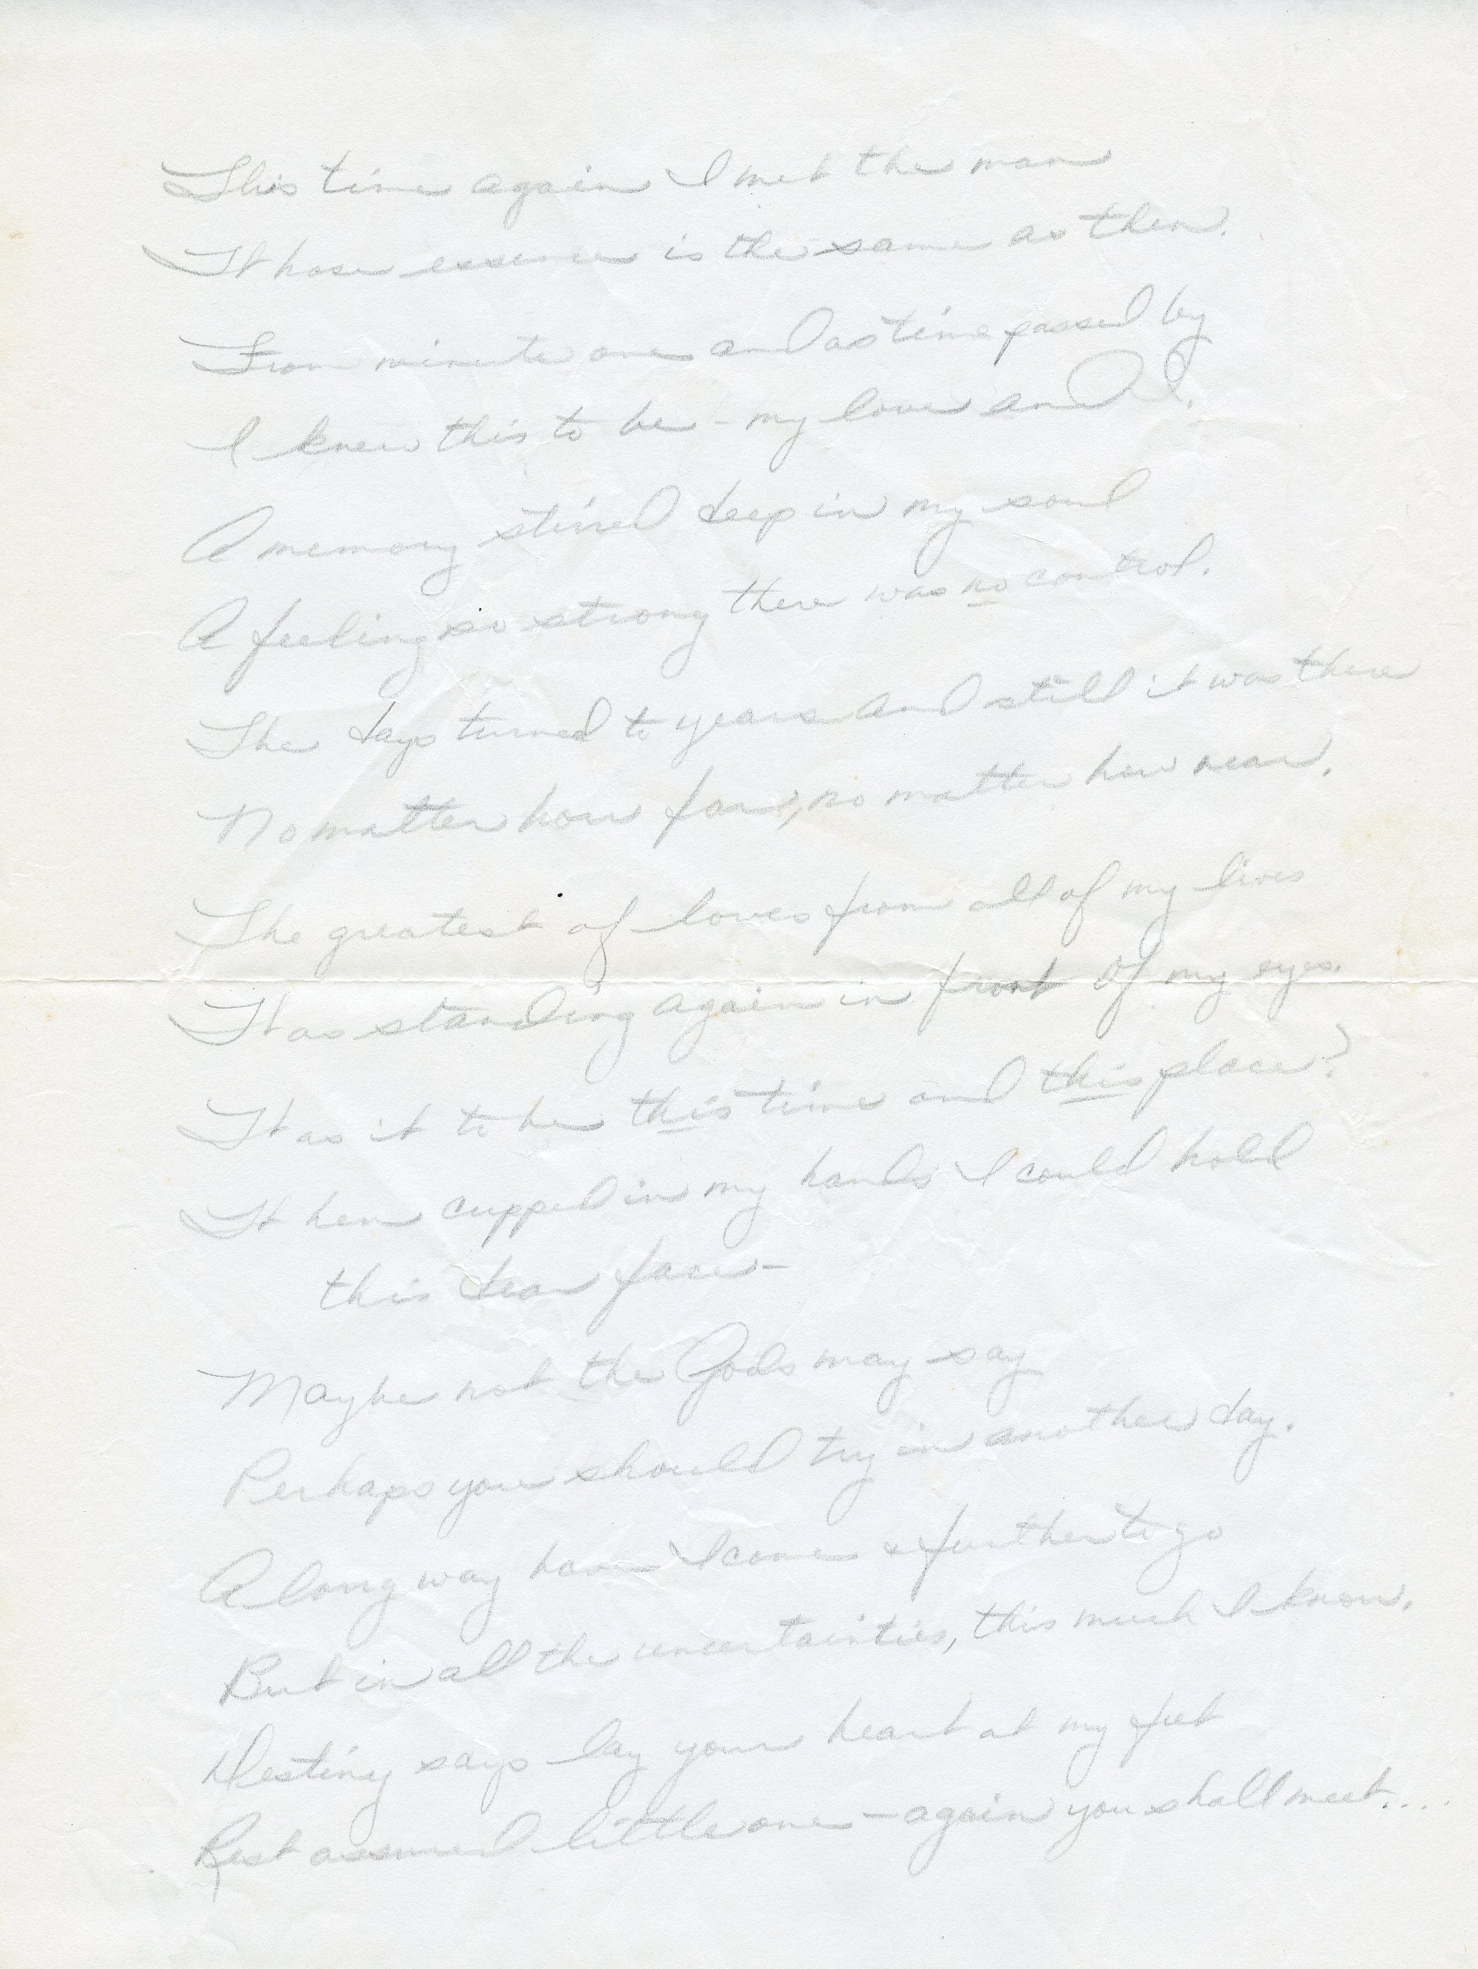 This time again I met the man
Whose essence is the same as then.
From minute one and as time passed by
I knew this to be - my love and I.
A memory stirred deep in my soul
A feeling so strong there was no control.
The days turned to years and still it was there
No matter how far, no matter how near.
The greatest of loves from all of my lives
Was standing again in front of my eyes.
Was it to be this time and this place?
When cupped in my hands I could hold
this dear face -
Maybe not the Gods may say
Perhaps you should try in another day.
A long way have I come & further to go
But in all the uncertainties, this much I know.
Destiny says lay your heart at my feet
Rest assured little one - again you shall meet....